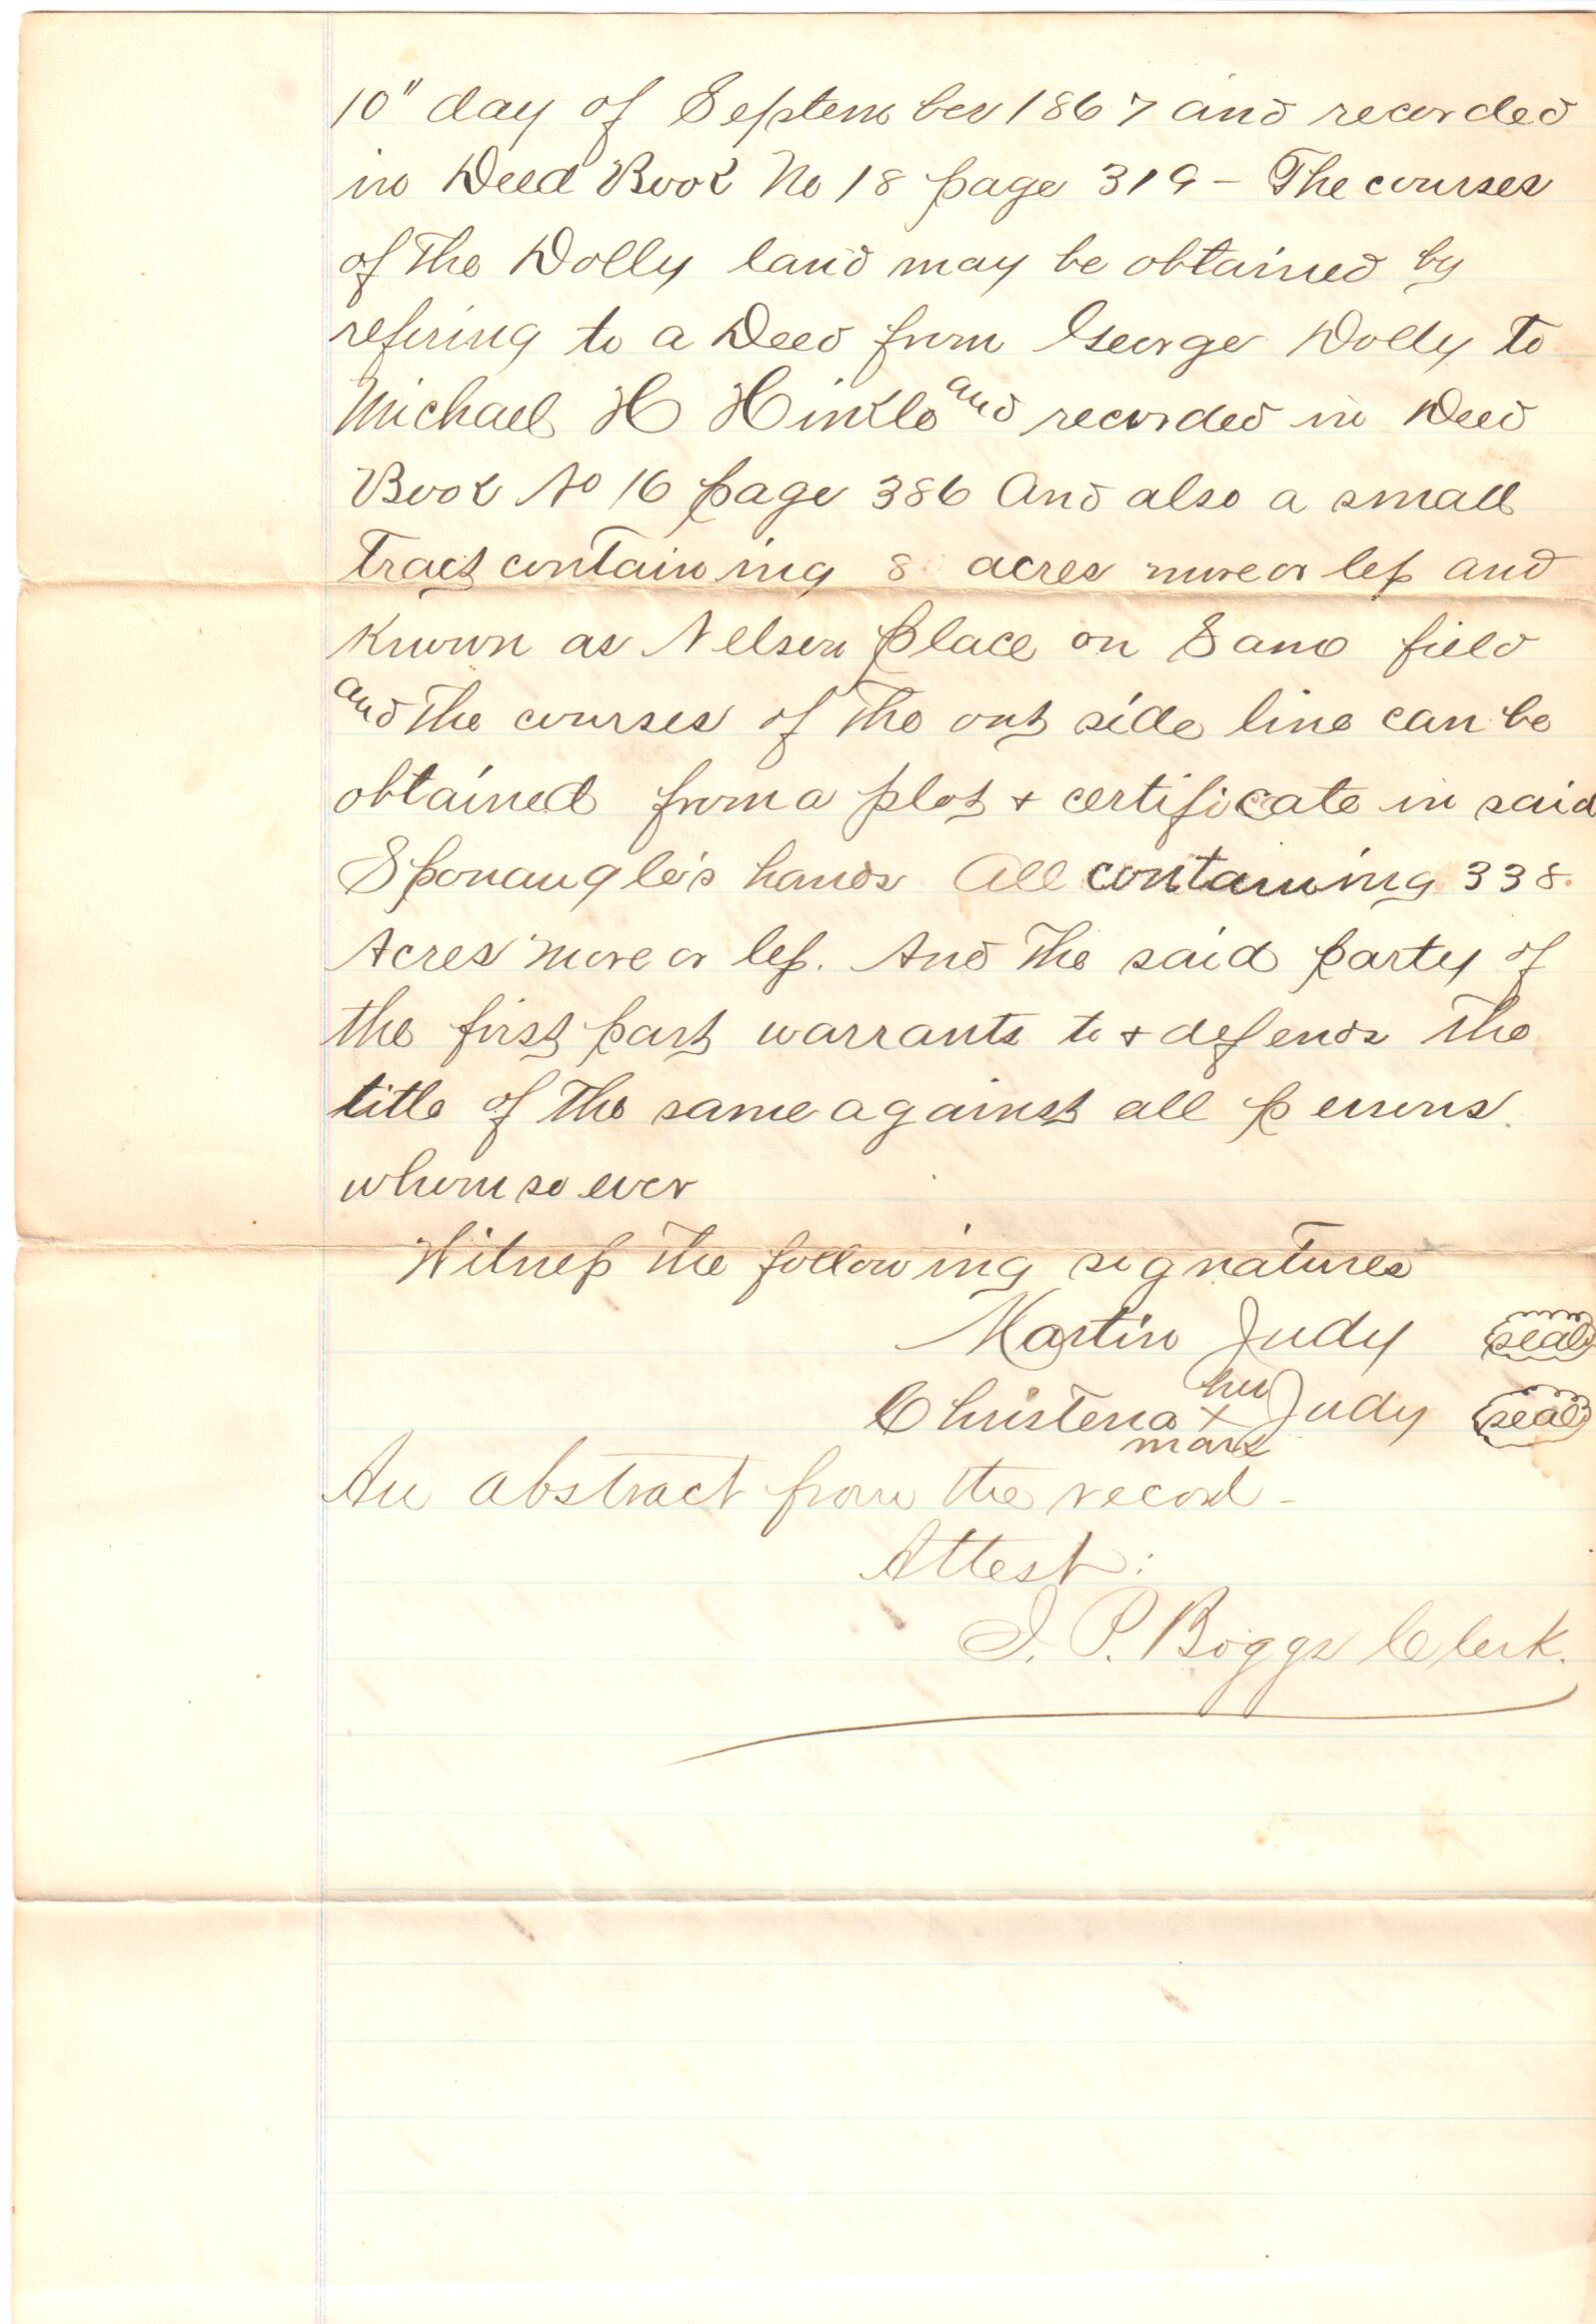 10" day of September 1867 and recorded
in Deed Book No 18 page 319 - The courses
of the Dolly land may be obtained by
refering to a Deed from George Dolly to
Michael H Hinkle and recorded in Deed
Book No 16 page 386 And also a small
Tract containing 8 acres more or less and
known as Nelson place on Sand field
and the courses of the out side line can be
obtained from a plot + certificate in said
Sponaugle's hands All containing 338
Acres more or less. And the said party of
the first part warrants to + defends the
title of the same against all persons
whomsoever
Witness the following signatures
Martin Judy seal
her
Christena x Judy seal
mark
An abstract from the record -
Attest:
I. P. Boggs Clerk.